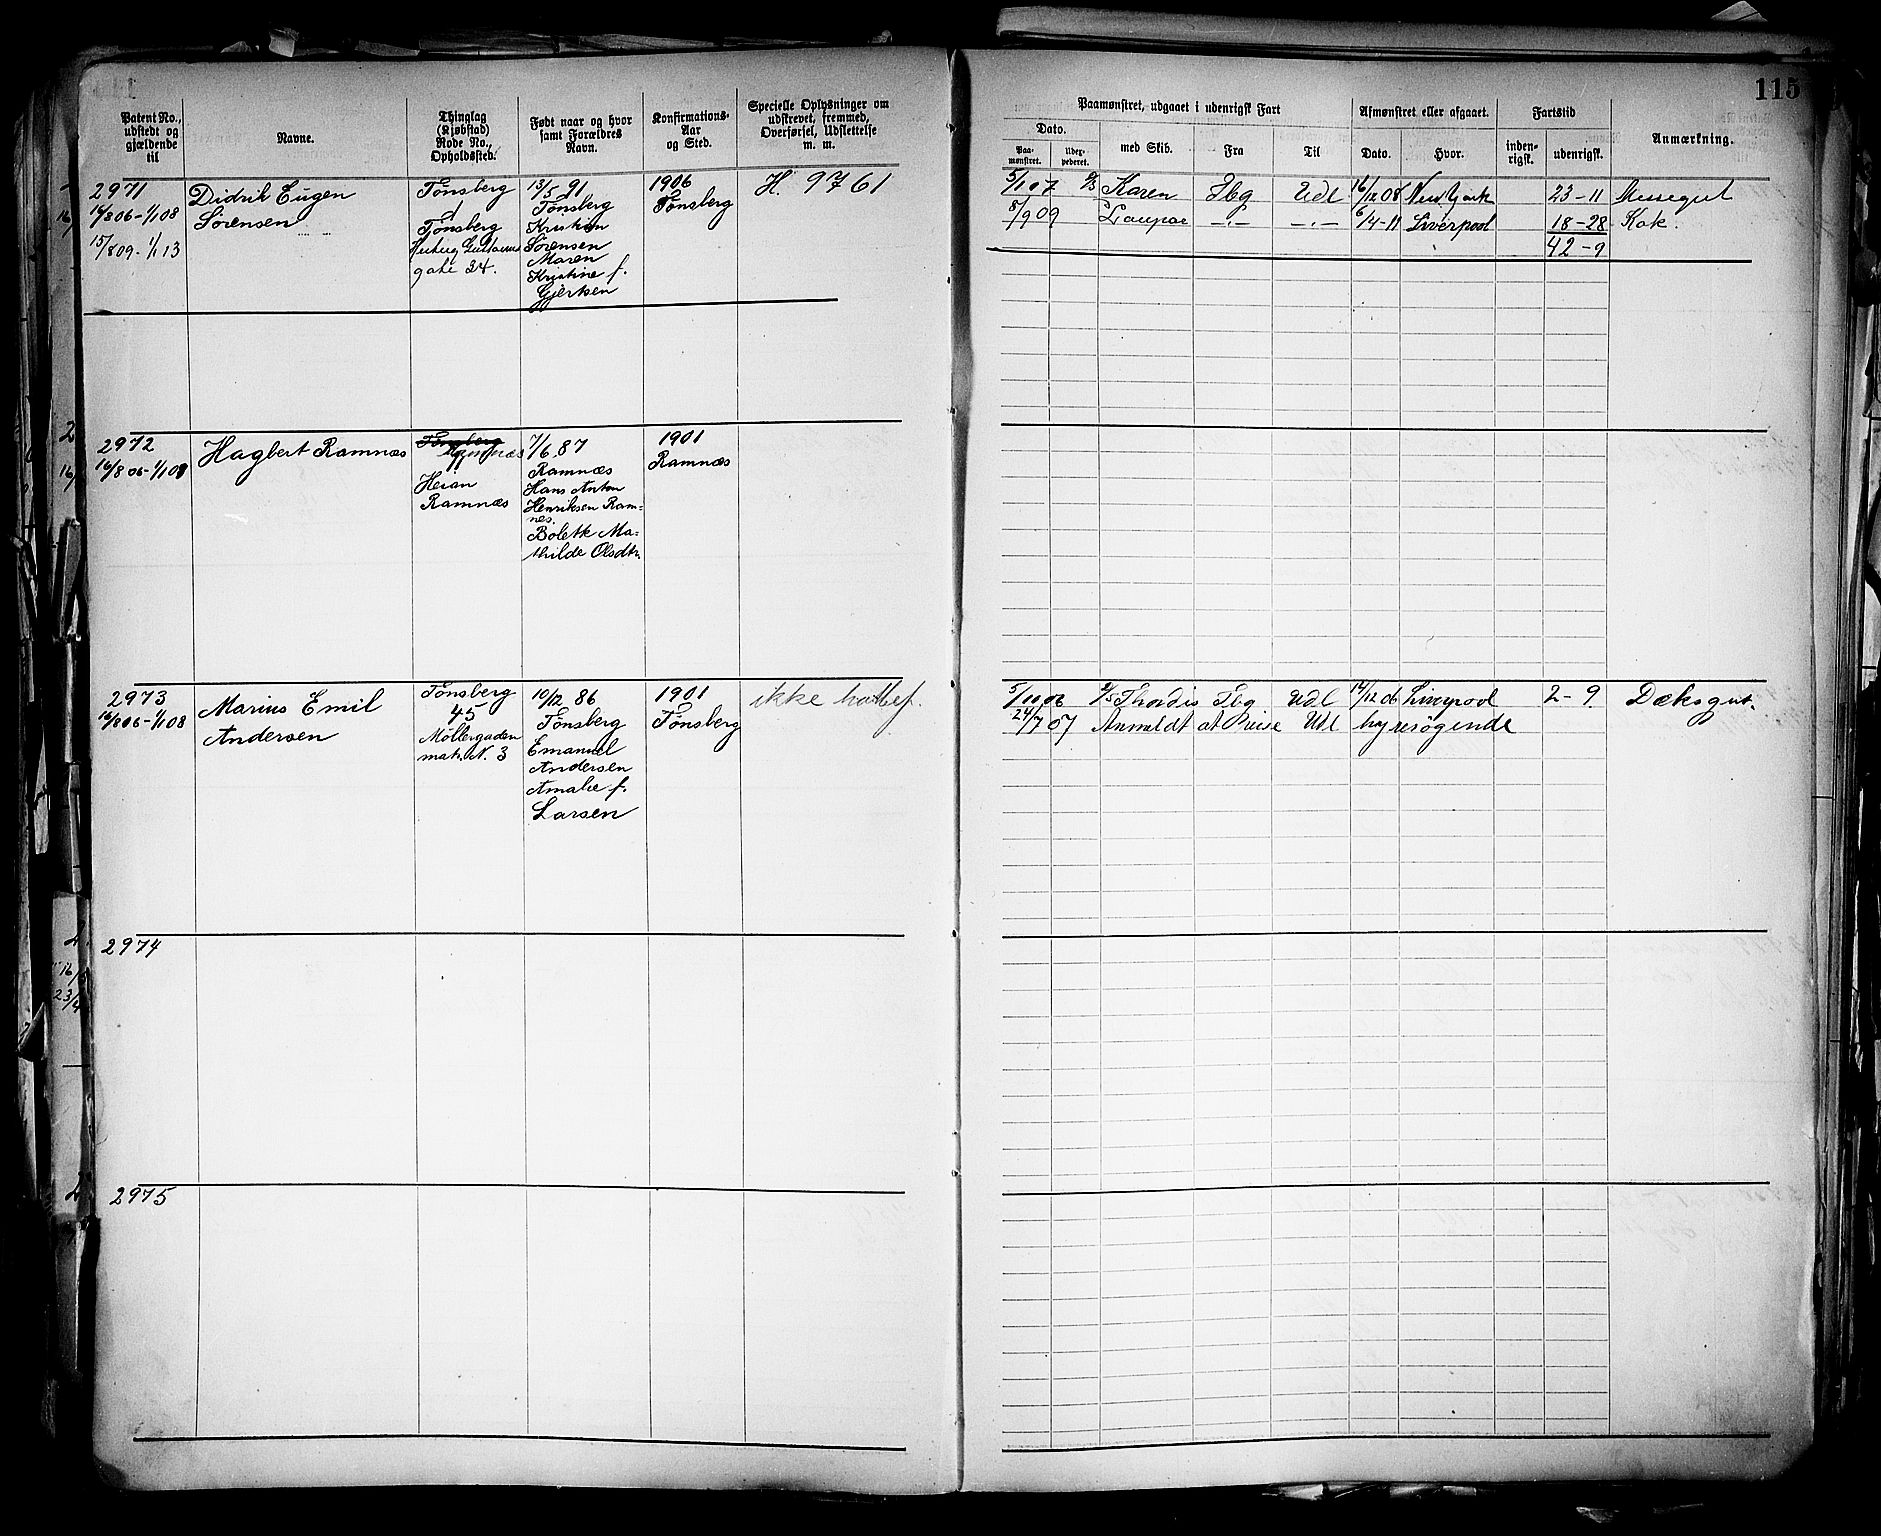 115
Patent No., udstedt og gjældende til
Navne.
Thinglag (Kjøbstad) Rode No., Opholdssted.
Født naar og hvor samt Forældres Navn.
Konfirmations-Aar og Sted.
Specielle Oplysninger om udskrevet, fremmed, Overførsel, Udslettelse m. m.
Paamønstret, udgaaet i udenrigsk Fart
Dato.
Paa-mønstret.
Uder-pederet.
med Skib.
Fra
Til
Afmønstret eller afgaaet.
Dato.
Hvor.
Fartstid
inden-rigsk.
udenrigsk.
Anmærkning.
2971
16/8 06-1/1 08
15/8 09-1/1 13
Didrik Eugen
Sørensen
Tønsberg
1
Tønsberg
gate 34.
13/5 91
Tønsberg
Kristian
Sørensen
Maren
Kristine f.
Gjertsen
1906
Tønsberg
H. 9761
5/1 07 Karen Tbg Udl 16/12 08 New York 23-11 Messegut
8/9 09 -"- -"- 6/4-11 Liverpool 18-28 Kok.
42-9
2972
16/8 06-1/1 08
Hagbert Ramnæs
Tønsberg
Ramnæs
Ramnæs
7/6 87
Ramnæs
Hans Anton
Henriksen Ram=
nes.
Bolette Ma=
thilde Olsdtr.
1901
Ramnæs
2973
16/8 06-1/1 08
Marius Emil
Andersen
Tønsberg
45
Møllergaden
matr. N. 3
10/12 86
Tønsberg
Emanuel
Andersen
Amalie f.
Larsen
1901
Tønsberg
ikke
5/10 06 Thordis Tbg Udl 14/12 06 Liverpool 2-9 Dæksgut.
24/7 07 Anmeldt at Reise Udl hyresøgende
2974
2975